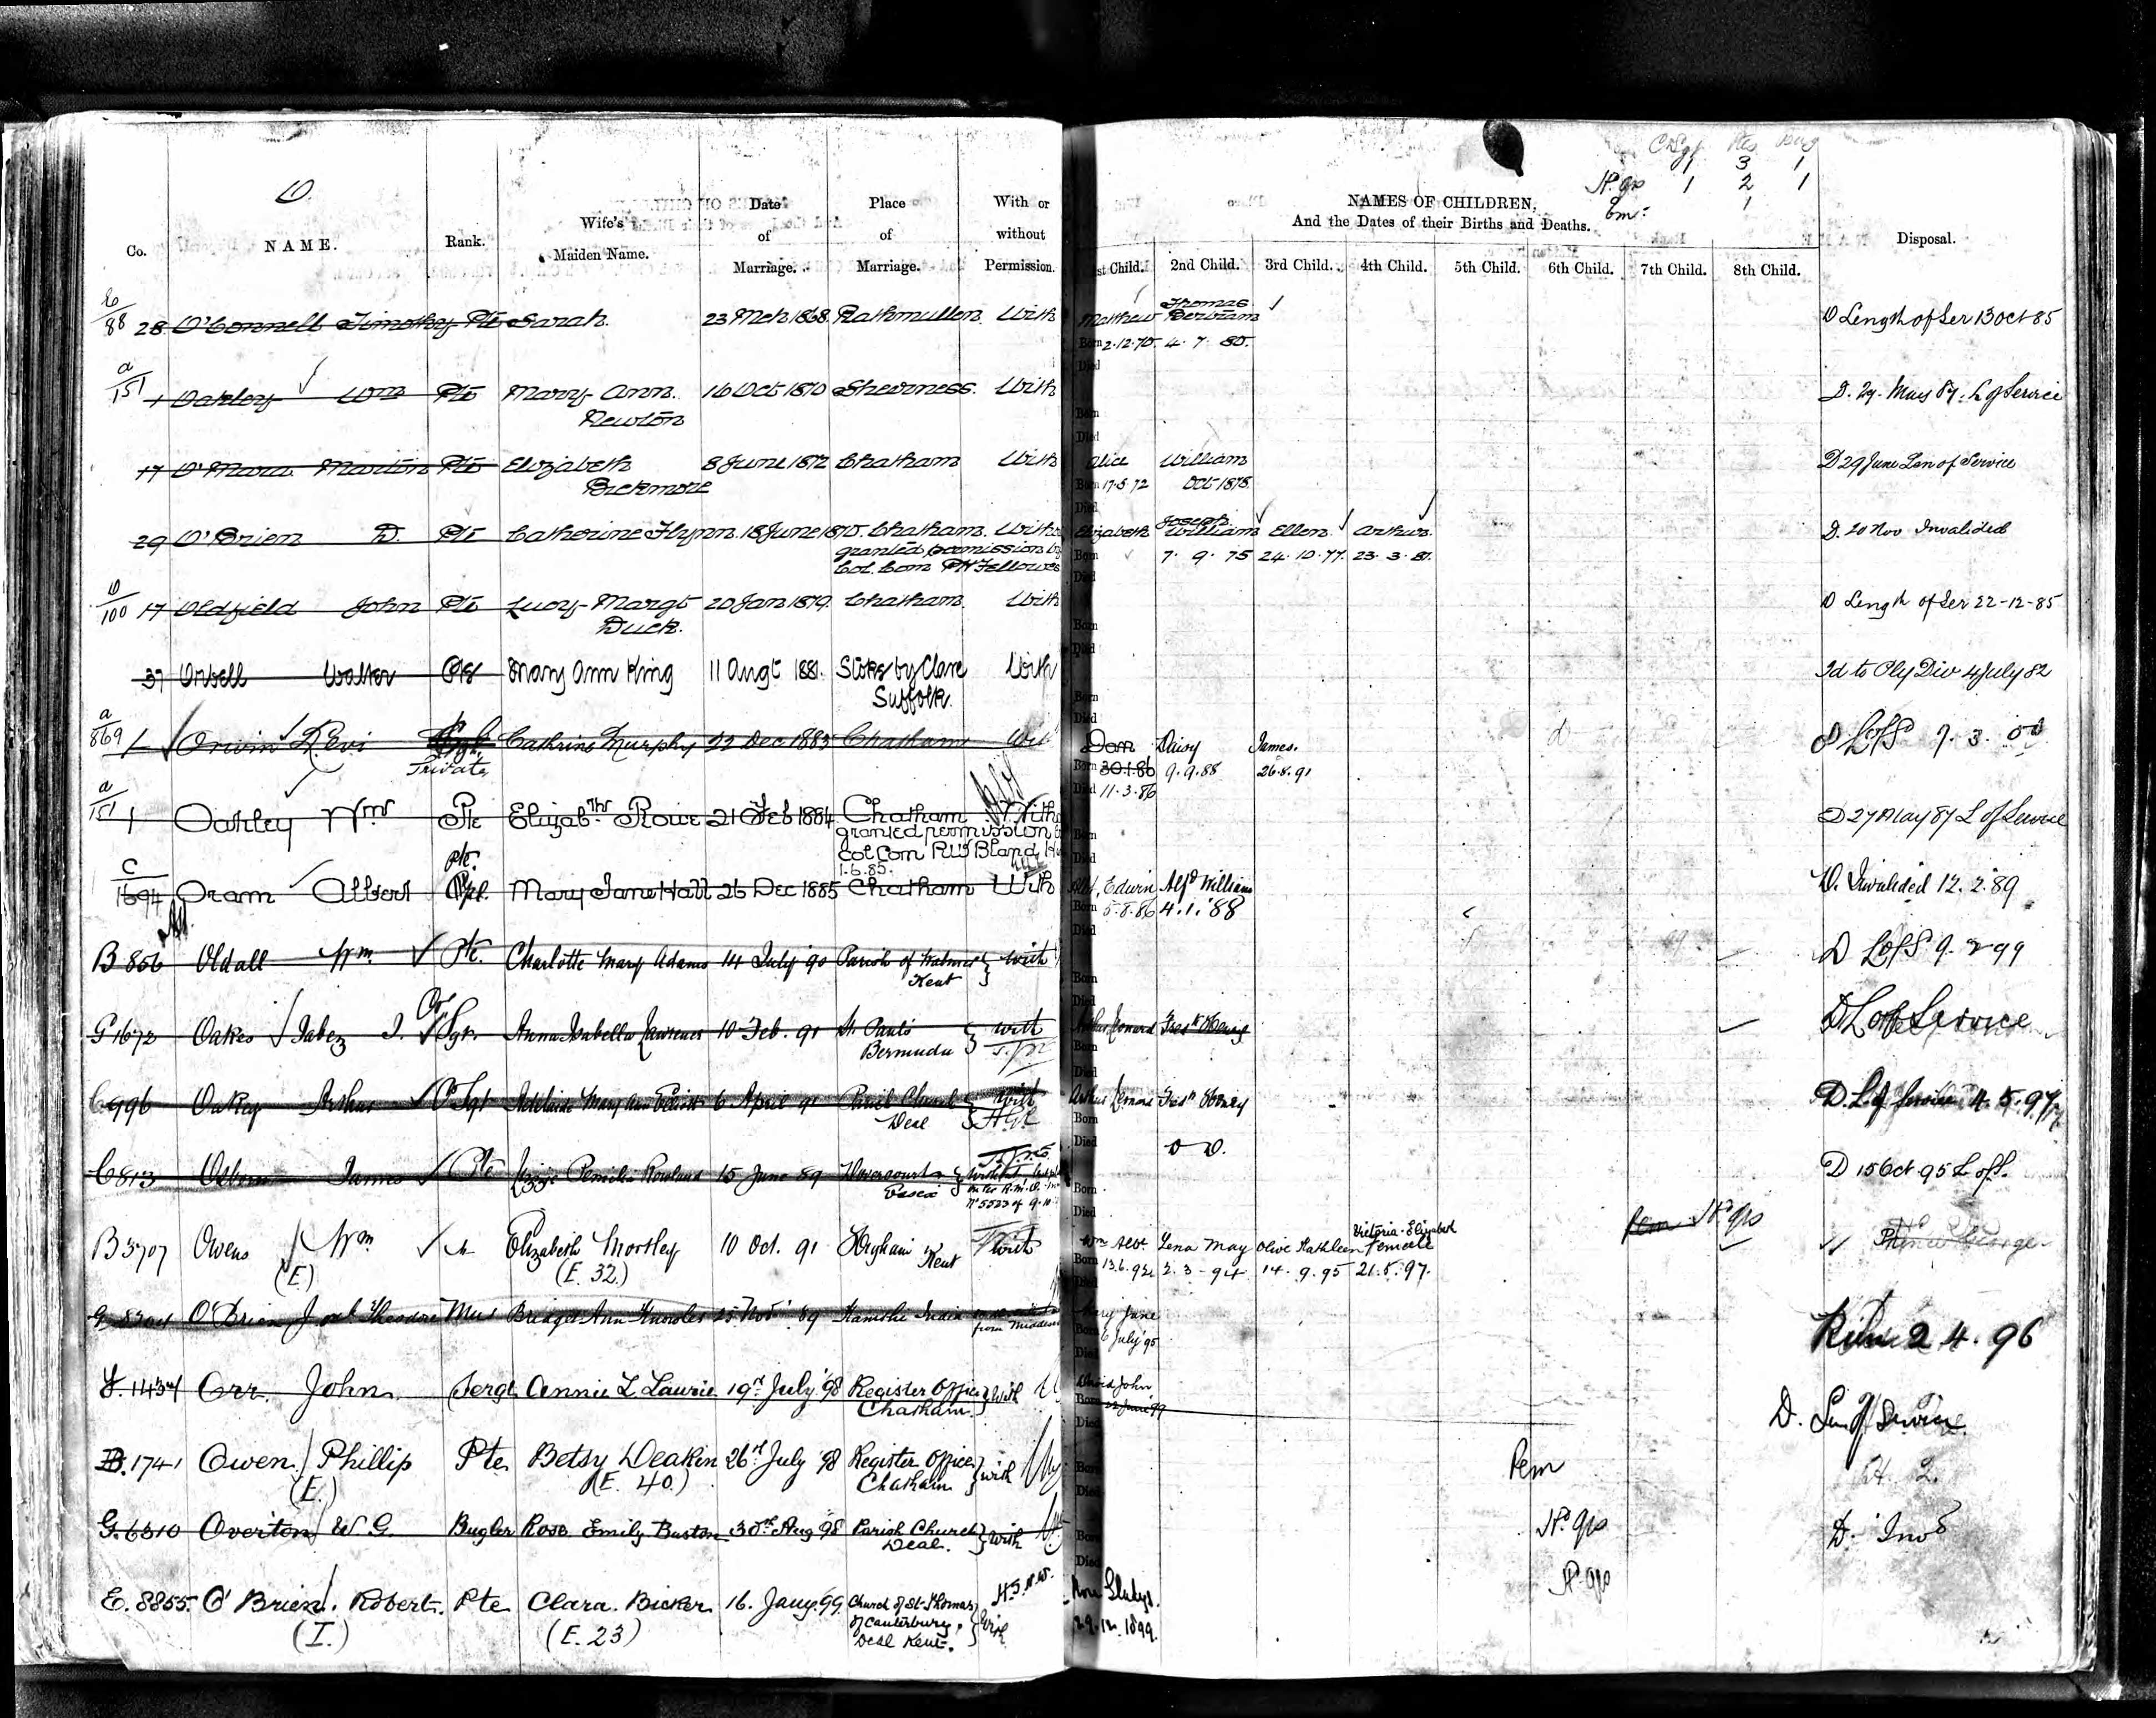 O.
Co. NAME. Rank. Wife's Maiden Name. Date of Marriage. Place of Marriage. With or without Permission.
NAMES OF CHILDREN,
And the Dates of their Births and Deaths.
1st Child. 2nd Child. 3rd Child. 4th Child. 5th Child. 6th Child. 7th Child. 8th Child. Disposal.
3 1
1 2 1
1
88 28 O'Connell Timothy Pte Sarah 23 Mch 1868 Rathmullen With Matthew Thomas Bertram D Length of Ser 13 Oct 85
Born 2.12.70. 4. 7. 80.
Died
a/151 1 Oakley Wm Pte Mary Ann 16 Oct 1870 Sheerness. With D. 27. May 87. L of Service
Newton
Born
Died
17 O'Mara Martin Pte Elizabeth 8 June 1872 Chatham With Alice William D 29 June Len of Service
Bickmore
Born 17.5.72 Oct 1878.
Died
29 O'Brien D. Pte Catherine Flynn 18 June 1870. Chatham. Elizabeth Joseph William Ellen Arthur. D. 20 Nov Invalided
granted permission by
Col. Com Fellowes
Born 7. 9. 75 24. 10. 77. 23. 3. 81.
Died
100 17 Oldfield John Pte Lucy Margt 20 Jan 1879. Chatham. With D Length of Ser 22-12-85
Duck.
Born
Died
37 Orbell Walter Mary Ann King 11 Augt 1881. Stoke by Clare With Td to Ply Div 4 July 82
Suffolk.
Born
Died
a/869 1 Orwin Levi Cathrine Murphy 22 Dec 1883 Chatham Dom Daisy James.
Private
Born 30.1.86 9.9.88 26.8.91
Died 11.3.86
a/151 1 Oakley Wm Pte Elizabth Rowe 21 Feb 1884 Chatham With D 27 May 87 L of Service
granted permission
Col Com Bland
1.6.85.
Born
Died
C/1694 Oram Albert Pte. Cpl. Mary Jane Hall 26 Dec 1885 Chatham With Edwin Alfd William D. Invalided 12.2.89
Born 5.8.86 4.1.'88
Died
B 856 Oldall Wm. Pte. Charlotte Mary Adams 14 July 90 Parish of Walmer with D L of S 9. 2 99
Kent
Born
Died
G 1672 Oakes Jabez J. Cr Sgt. Anna Isabella Lawrence 10 Feb. 91 St Paul's with Fredk Henry D L of Service
Bermuda
Born
Died
C 996 Oakey Arthur C Sgt Adelaide Mary Ann 6 April 91 Parish Church with Arthur Fredk Henry D. L of Service 4.5.97
Deal
Born
Died
C 813 Osborn James Pte Lizzie Rowland 15 June 89 D 15 Oct 95 L of S.
Essex
Born
Died
B 3707 Owens Wm Elizabeth Morsley 10 Oct. 91 Higham with Wm Albt. Lena May Olive Kathleen Victoria Elizabeth
(E) (E. 32.) Kent
Born 13.6.92 2. 3. 94 14. 9. 95 21. 5. 97.
Died
O'Brien Theodore Mus Bridget Ann Knowles 25 Novr 89 Kamthi India Mary Jane 2. 4. 96
Born 6 July 95
Died
1434 Orr. John. Sergt Annie L Laurie 19th July '98 Register Office with David John D. Len of Service
Chatham.
Born 22 June 99
Died
B. 1741 Owen Phillip Pte Betsy Deakin 26th July 98 Register Office with Pem
(E.) (E. 40.) Chatham
Born
Died
G. 6310 Overton W G. Bugler Rose Emily Buston 30th Aug 98 Parish Church with D. Invd
Deal.
Born
Died
E. 8855. O'Brien. Robert. Pte Clara Bicker 16. Jany. 99. Church of St Thomas With Gladys.
(I.) (E. 23) of Canterbury,
Deal Kent.
29.12.1899.